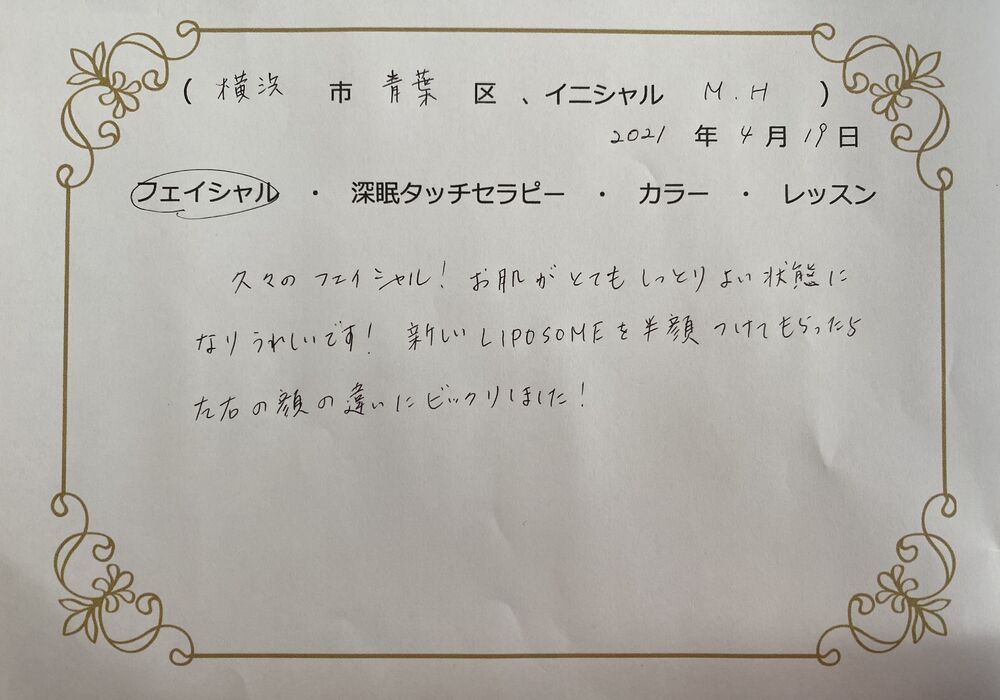 ( 横浜 市 青葉 区 、イニシャル M.H )
2021 年 4 月 19 日
フェイシャル ・ 深眠タッチセラピー ・ カラー ・ レッスン
久々のフェイシャル! お肌がとてもしっとりよい状態に
なりうれしいです! 新しいLIPOSOMEを半顔つけてもらったら
左右の顔の違いにビックリしました!